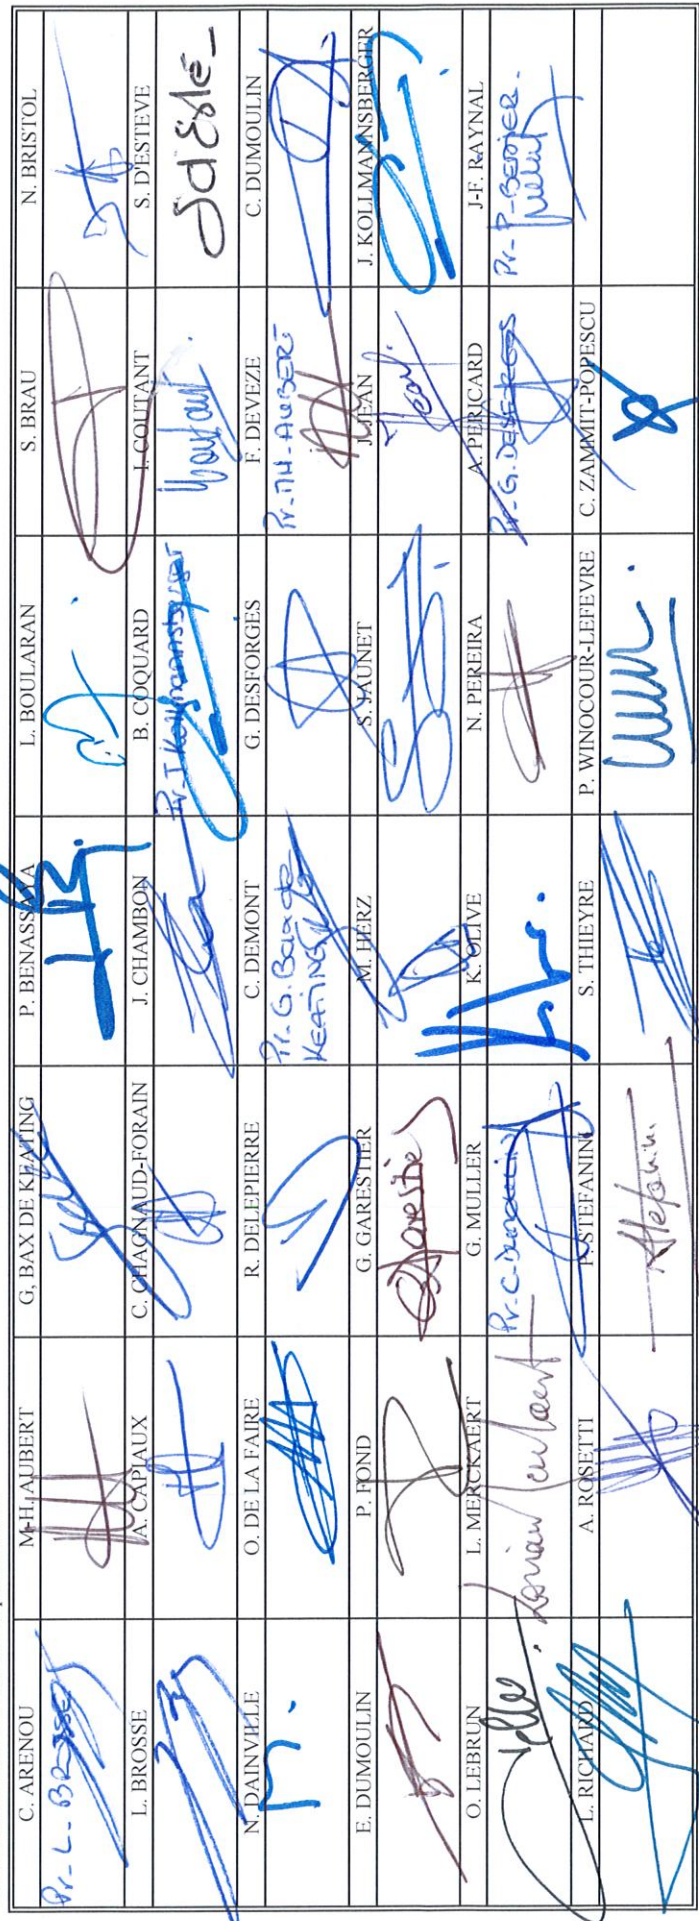 C. ARENOU M-H. AUBERT G. BAX DE KEATING P. BENASSAYA L. BOULARAN S. BRAU N. BRISTOL
Pr. L. BROSSE
L. BROSSE A. CAPIAUX C. CHAGNAUD-FORAIN J. CHAMBON B. COQUARD I. COUTANT S. D'ESTEVE
Pr. J Kollmannsberger Coutant Sd'Esté
N. DAINVILLE O. DE LA FAIRE R. DELEPIERRE C. DEMONT G. DESFORGES F. DEVEZE C. DUMOULIN
Pr. G. Bax de KEATING Pr. MH. AUBERT
E. DUMOULIN P. FOND G. GARESTIER M. HERZ S. JAUNET J. JEAN J. KOLLMANNSBERGER
Garestier Jean
O. LEBRUN L. MERCKAERT G. MULLER K. OLIVE N. PEREIRA A. PERICARD J-F. RAYNAL
Pr. C. Dumoulin Pr. G. DESFORGES
L. RICHARD A. ROSETTI P. STEFANINI S. THIEYRE P. WINOCOUR-LEFEVRE C. ZAMMIT-POPESCU
Stefanini